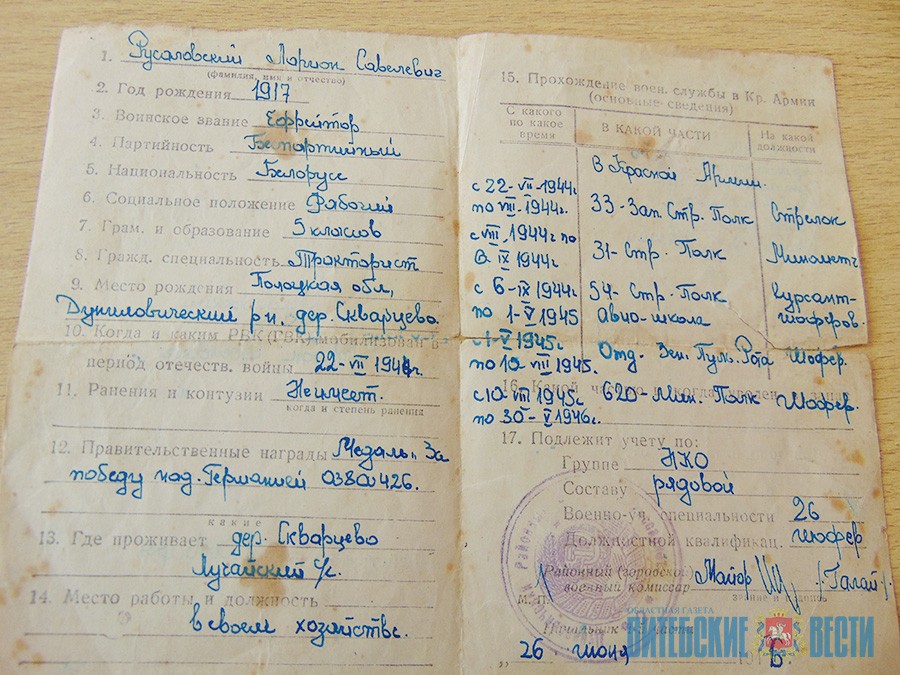 1. Русаловский Ларион Савелевич
(фамилия, имя и отчество)
2. Год рождения 1917
3. Воинское звание Ефрейтор
4. Партийность Беспартийный
5. Национальность Белорусс
6. Социальное положение Рабочий
7. Грам. и образование 5 класов
8. Гражд. специальность Тракторист
9. Место рождения Полоцкая обл,
Дуниловический р-н, дер. Скварцево.
10. Когда и каким РВК (ГВК) мобилизован в
период отечеств. войны 22-VII 1944г.
11. Ранения и контузии Неимеет.
когда и степень ранения
12. Правительственные награды Медаль „За
победу над. Германией 0380426.
какие
13. Где проживает дер. Скварцево
Лучайский с/с.
14. Место работы и должность
в своем хозяйстве.
15. Прохождение воен. службы в Кр. Армии
(основные сведения)
С какого по какое время В КАКОЙ ЧАСТИ На какой должности
В Красной Армии.
с 22-VII-1944г. по VIII-1944г. 33-Зап. Стр. Полк Стрелок
с VIII 1944г по IX 1944г 31-Стр. Полк Минометч
с 6-IX 1944г по 1-V 1945 54-Стр. Полк авто-школа Курсант-шоферов.
с 1-V 1945г. по 10-VIII 1945. Отд. Зен. Пуль. Рота Шофер.
16. Какой когда уволен в запас
с 10-VIII 1945г по 30-V 1946г. 620-Мин. Полк Шофер.
17. Подлежит учету по:
Группе НКО
Составу рядовой
Военно-уч. специальности 26
Должностной квалификац. шофер
Районный (городской) военный комиссар Майор /Гагай/
М. П.
звание и подпись
Начальник 1-й части
„26 июня
ОБЛАСТНАЯ ГАЗЕТА
ВИТЕБСКИЕ ВЕСТИ